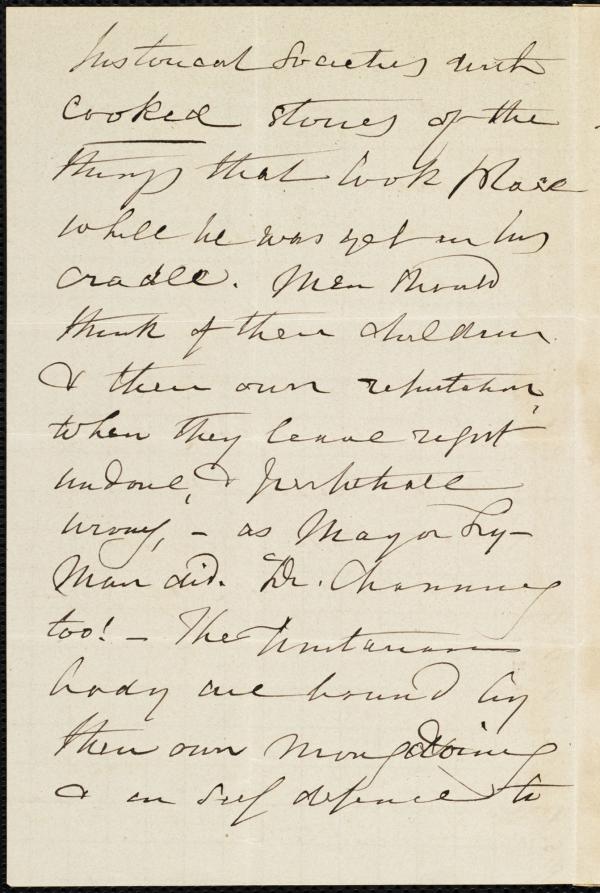 historical societies with
cooked stories of the
things that took place
while he was yet in his
cradle. Men should
think of their children
& their own reputation,
when they leave right
undone, & perpetrate
wrong, – as Mayor Ly-
man did. Dr. Channing
too! – The Unitarian
body are bound by
their own wrongdoing
& in self defence to